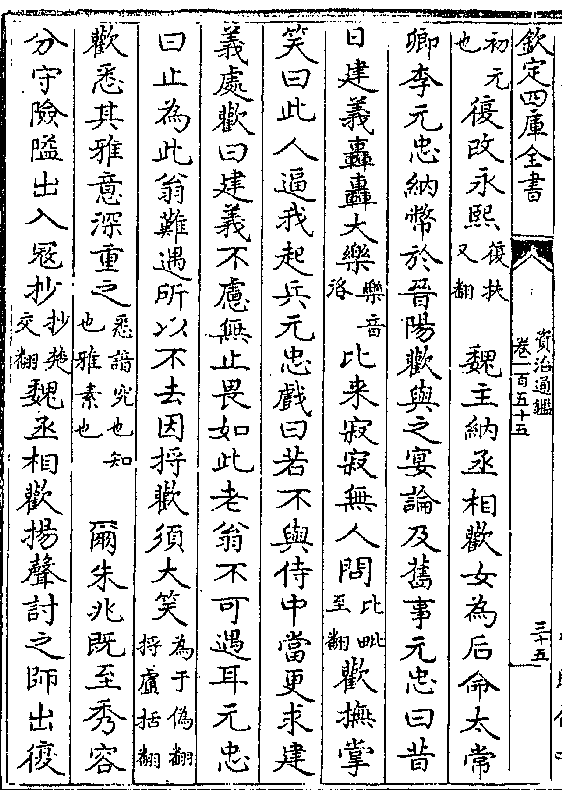 欽定四庫全書
資治通鑑
卷一百五十五
三十五
初元
也
復改永熙
復扶
又翻
魏主納丞相歡女為后命太常
卿李元忠納幣於晉陽歡與之宴論及舊事元忠曰昔
日建義轟轟大樂
樂音
洛
比来寂寂無人問
比毗
至翻
歡撫掌
笑曰此人逼我起兵元忠戲曰若不與侍中當更求建
義處歡曰建義不慮無止畏如此老翁不可遇耳元忠
曰止為此翁難遇所以不去因捋歡須大笑
為于偽翻
捋盧括翻
歡悉其雅意深重之
悉諳究也知
也雅素也
爾朱兆既至秀容
分守險隘出入寇抄
抄楚
交翻
魏丞相歡揚聲討之師出復